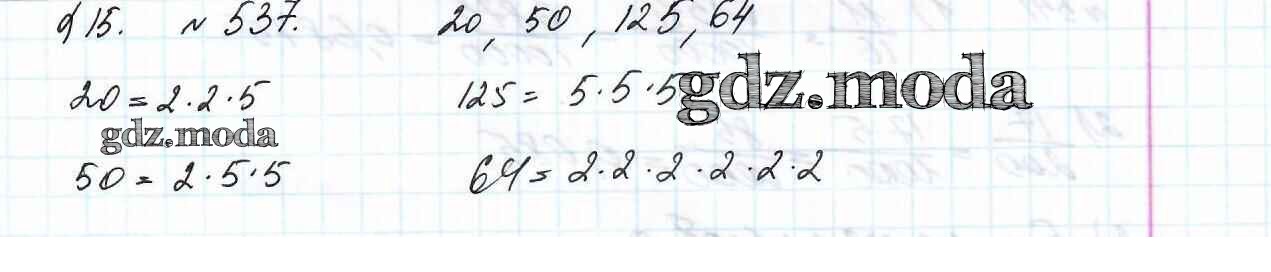 § 15. № 537. 20, 50, 125, 64
20 = 2·2·5 125 = 5·5·5 gdz.moda
gdz.moda
50 = 2·5·5 64 = 2·2·2·2·2·2